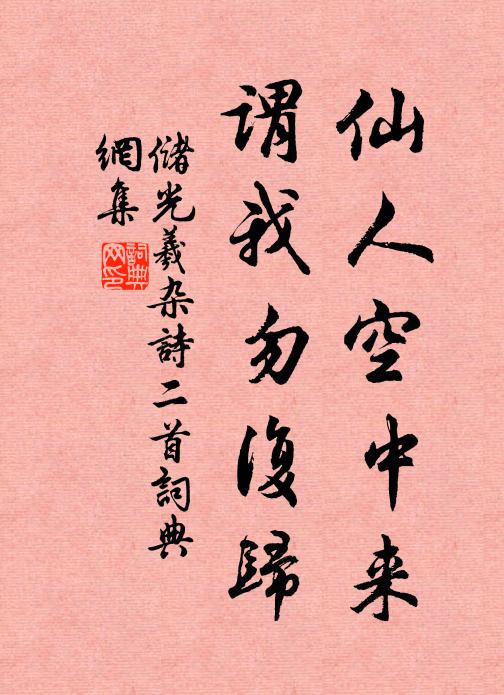 仙人空中来
谓我勿復歸
儲光羲杂詩二首詞典
網集
詞典
网印